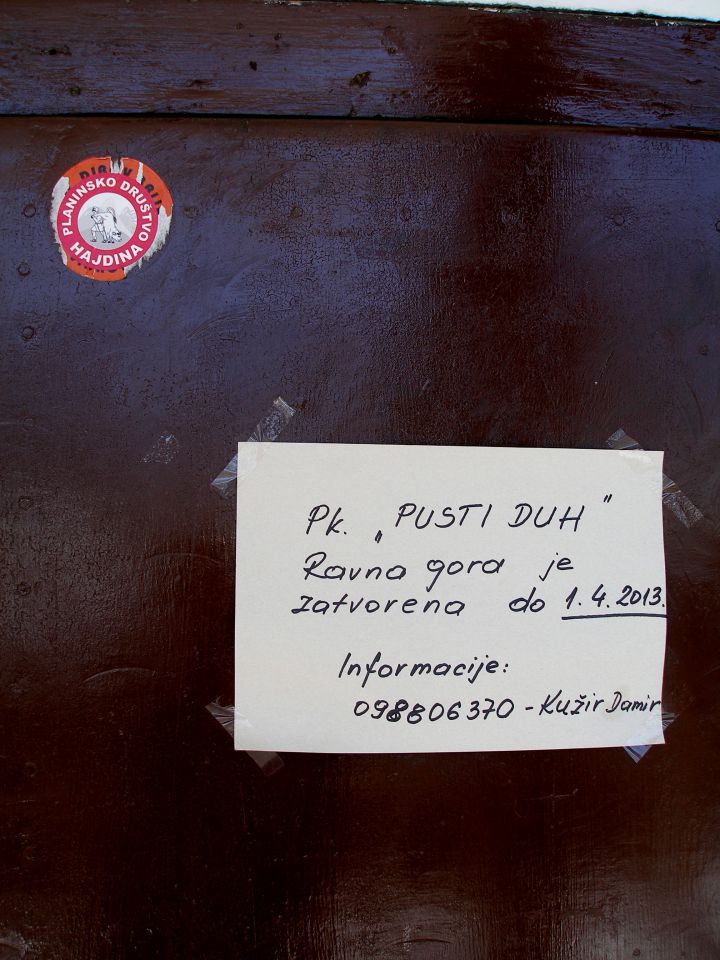 PLANINSKO DRUŠTVO
HAJDINA
Pk. „PUSTI DUH"
Ravna gora je
zatvorena do 1.4.2013.
Informacije:
098806370 - Kužir Damir